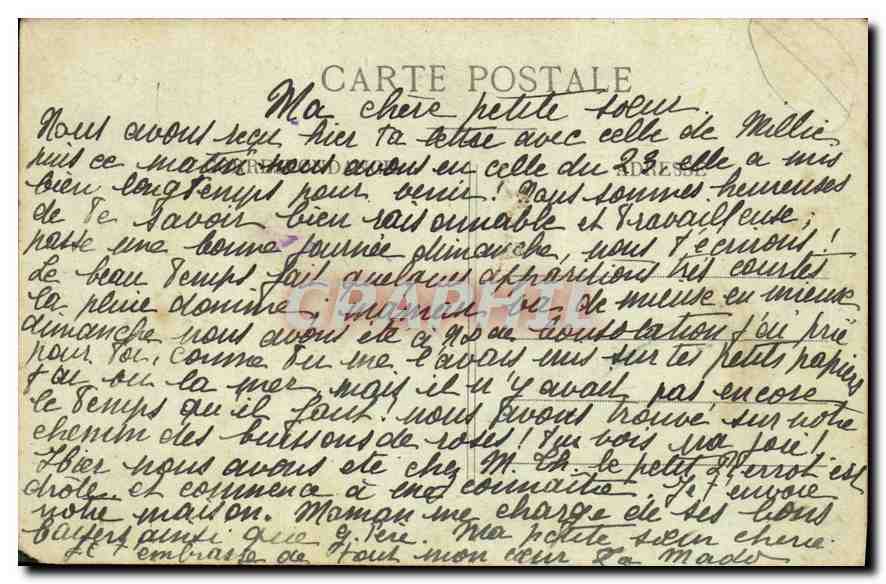 CARTE POSTALE
Ma chère petite sœur
Nous avons reçu hier ta lettre avec celle de Millie
puis ce matin nous avons eu celle du 23 elle a mis
CORRESPONDANCE ADRESSE
bien longtemps pour venir! Nous sommes heureuses
de te savoir bien raisonnable et travailleuse,
passe une bonne journée dimanche, nous t'écrirons!
Le beau temps fait quelques apparitions très courtes
la pluie domine, maman va de mieux en mieux
CPARHIL
dimanche nous avons été à ND de Consolation j'ai prié
pour toi, comme tu me l'avais mis sur tes petits papiers
j'ai vu la mer mais il n'y avait pas encore
le temps qu'il faut! nous avons trouvé sur notre
chemin des buissons de roses! Tu vois ma joie!
Hier nous avons été chez M. Th. le petit Pierrot est
drôle et commence à me connaître. Je t'envoie
notre maison. Maman me charge de ses bons
baisers ainsi que g. Père. Ma petite sœur chérie
je t'embrasse de tout mon cœur Ta Mado